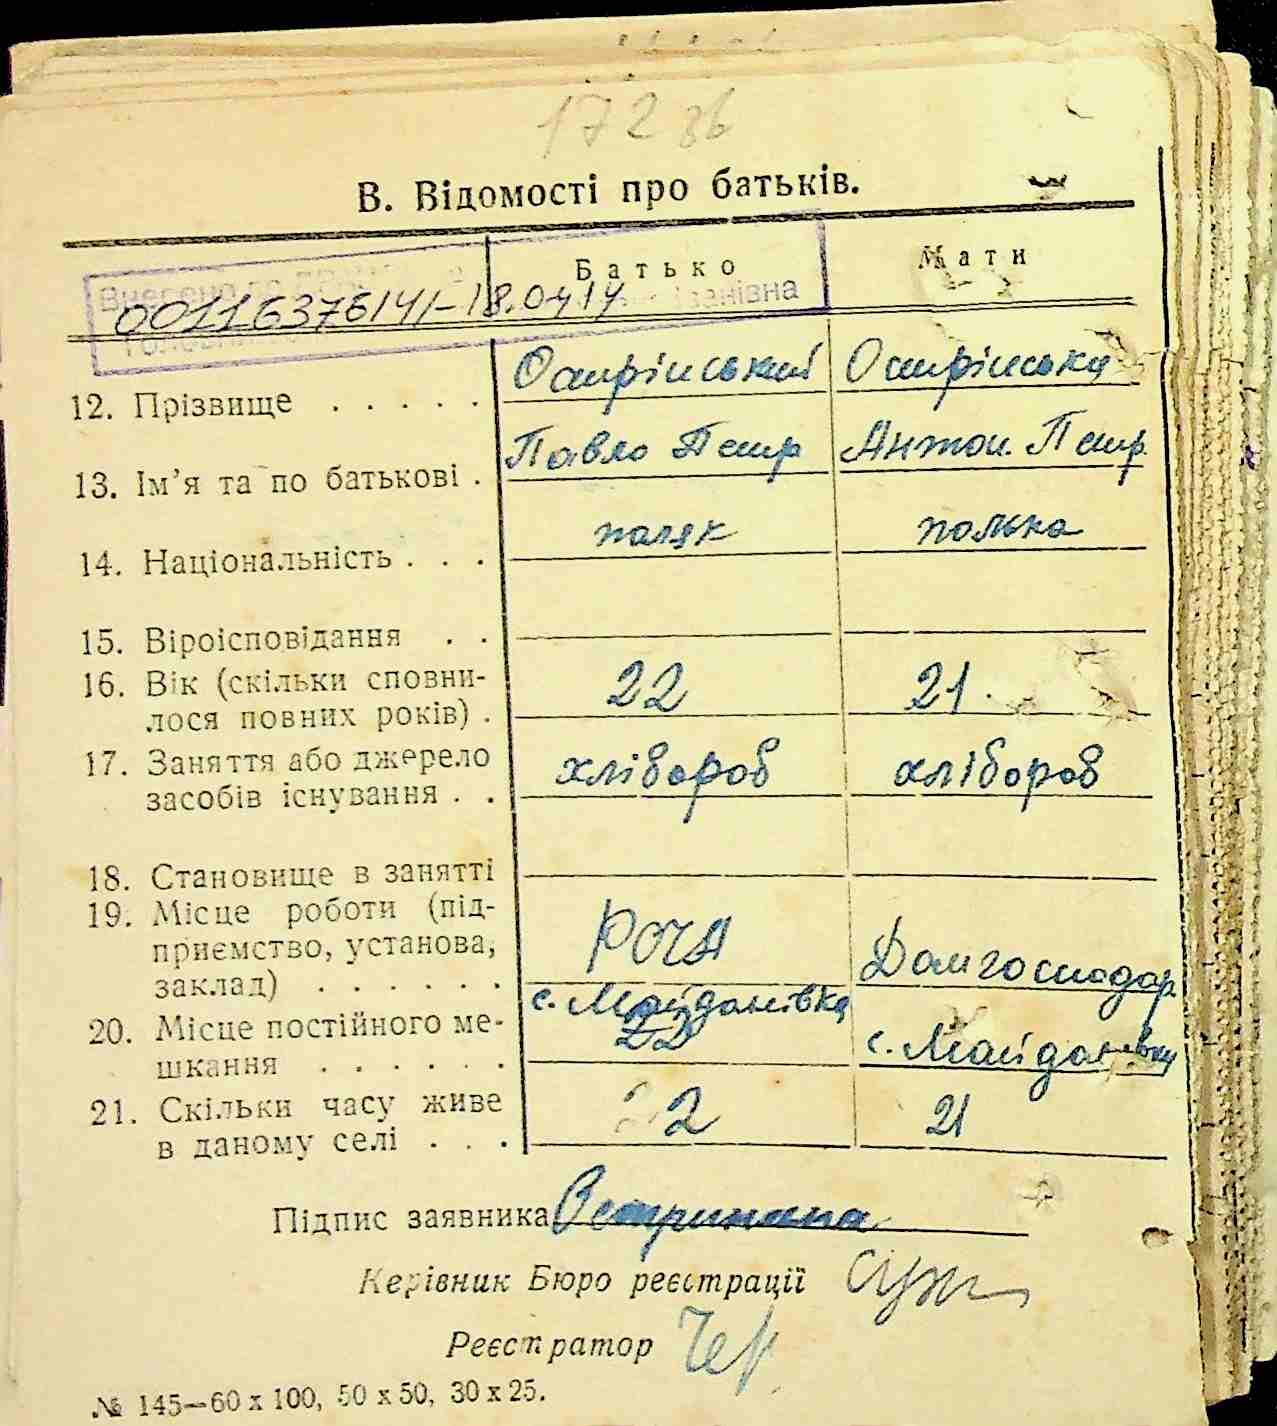 172 зв
В. Відомості про батьків.
Батько Мати
Внесено до
00116376141-18.04.14
івна
12. Прізвище . . . . . Остріпський Остріпська
13. Ім’я та по батькові . Павло Петр Антон. Петр.
14. Національність . . . поляк полька
15. Віроісповідання . .
16. Вік (скільки сповни-
лося повних років) . 22 21
17. Заняття або джерело
засобів існування . . хлібороб хлібороб
18. Становище в занятті
19. Місце роботи (під-
приємство, установа,
заклад) . . . . . . РСЧА Домгосподар
20. Місце постійного ме-
шкання . . . . . . с. Майданівка с. Майданівка
22
21. Скільки часу живе
в даному селі . . . 22 21
Підпис заявника
Керівник Бюро реєстрації
Реєстратор Чер
№ 145—60 х 100, 50 х 50, 30 х 25.